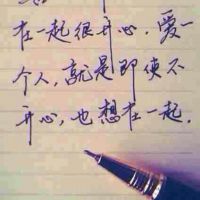 在一起很开心,爱一
个人,就是即使不
开心,也想在一起.